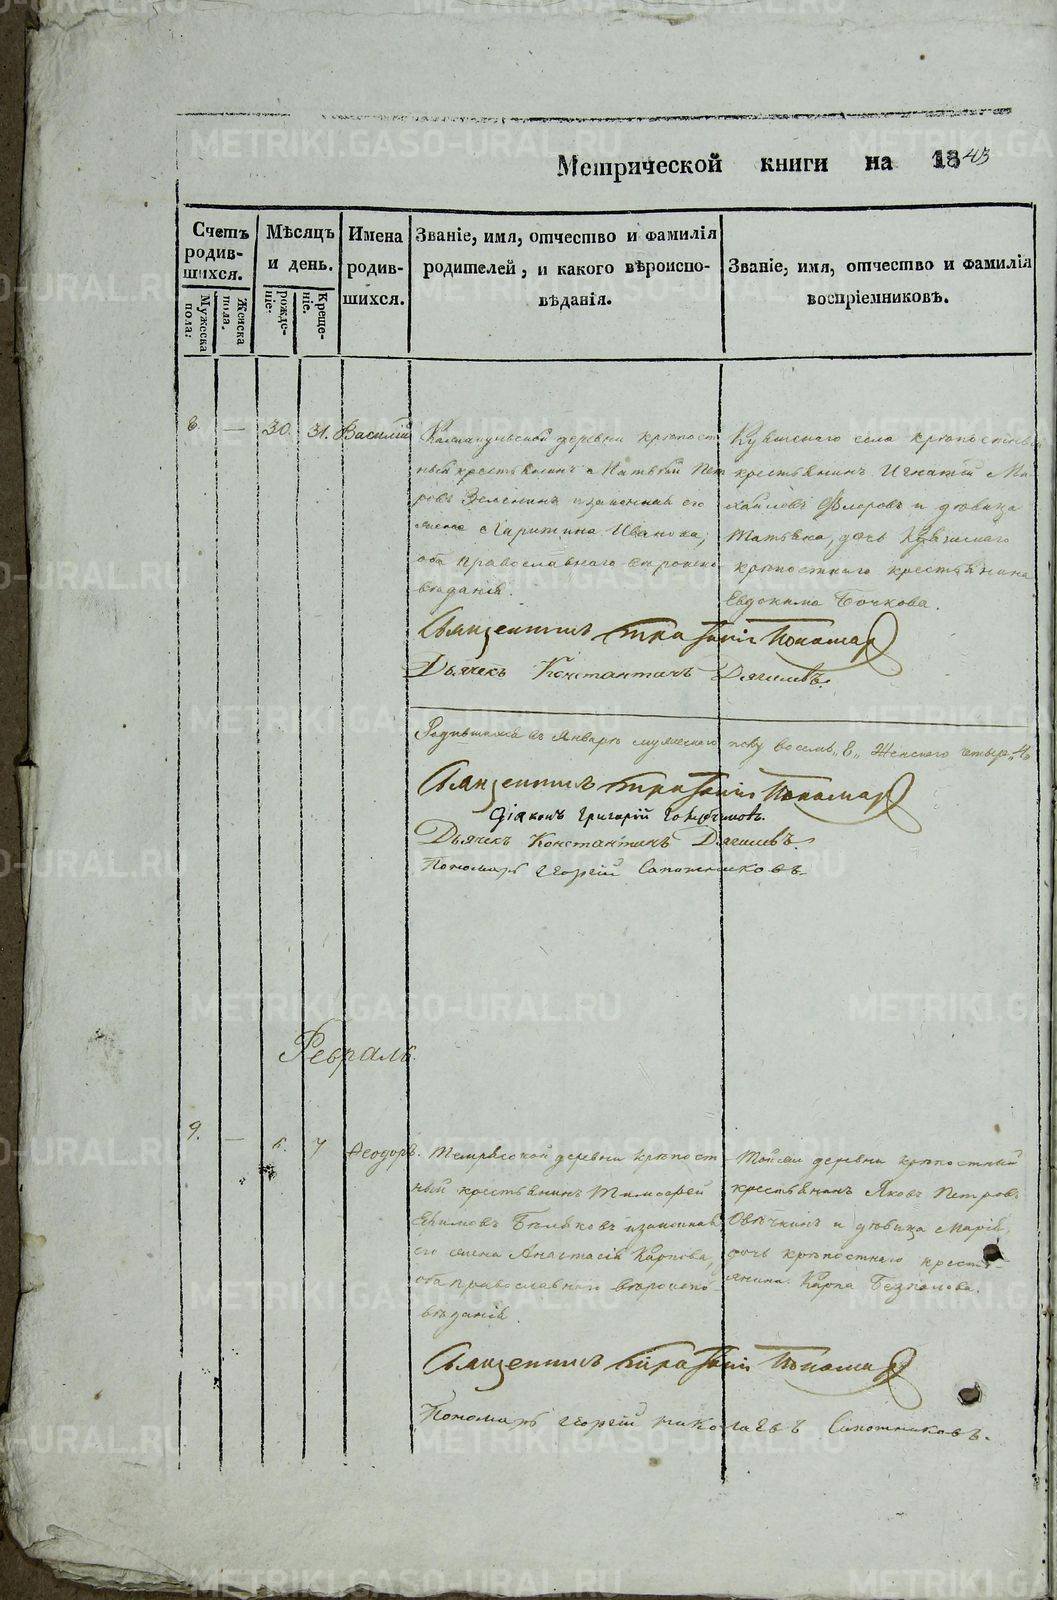 Метрической книги на 1843
Счетъ родив-шихся.
Мужеска пола.
Женска пола.
Мѣсяцъ и день.
рожде-ніе.
Креще-ніе.
Имена родив-шихся.
Званіе, имя, отчество и фамилія
родителей, и какого вѣроиспо-
вѣданія.
Званіе, имя, отчество и фамилія
воспріемниковъ.
8. — 30. 31. Василій
деревни крѣпост
ный крестьянинъ Матвѣй Пет
ровъ Зеленинъ и законная его
жена Харитина Иванова,
оба православнаго вѣроиспо
вѣданія.
села крѣпостный
крестьянинъ Игнатій Ми
хайловъ Флоровъ и дѣвица
Татьяна, дочь
крѣпостнаго крестьянина
Евдокима Бочкова.
Священникъ Понома
Дьячекъ Константинъ Дягилевъ.
Родившихся въ Январѣ мужескаго полу восемь „8„ Женскаго четыр. „4„
Священникъ Понома
Діаконъ Григорій
Дьячекъ Константинъ Дягилевъ.
Пономарь Георгій Сапожниковъ.
Февраль.
9. — 6. 7 Ѳеодоръ.
деревни крѣпост
ный крестьянинъ Тимоѳей
Ефимовъ и законная
его жена Анастасія Карпова,
оба православнаго вѣроиспо-
вѣданія.
Той же деревни крѣпостный
крестьянинъ Яковъ Петровъ
Овечкинъ и дѣвица Марія,
дочь крѣпостнаго кресть-
янина Карпа
Священникъ Понома
Пономарь Георгій Николаевъ Сапожниковъ.
METRIKI.GASO-URAL.RU